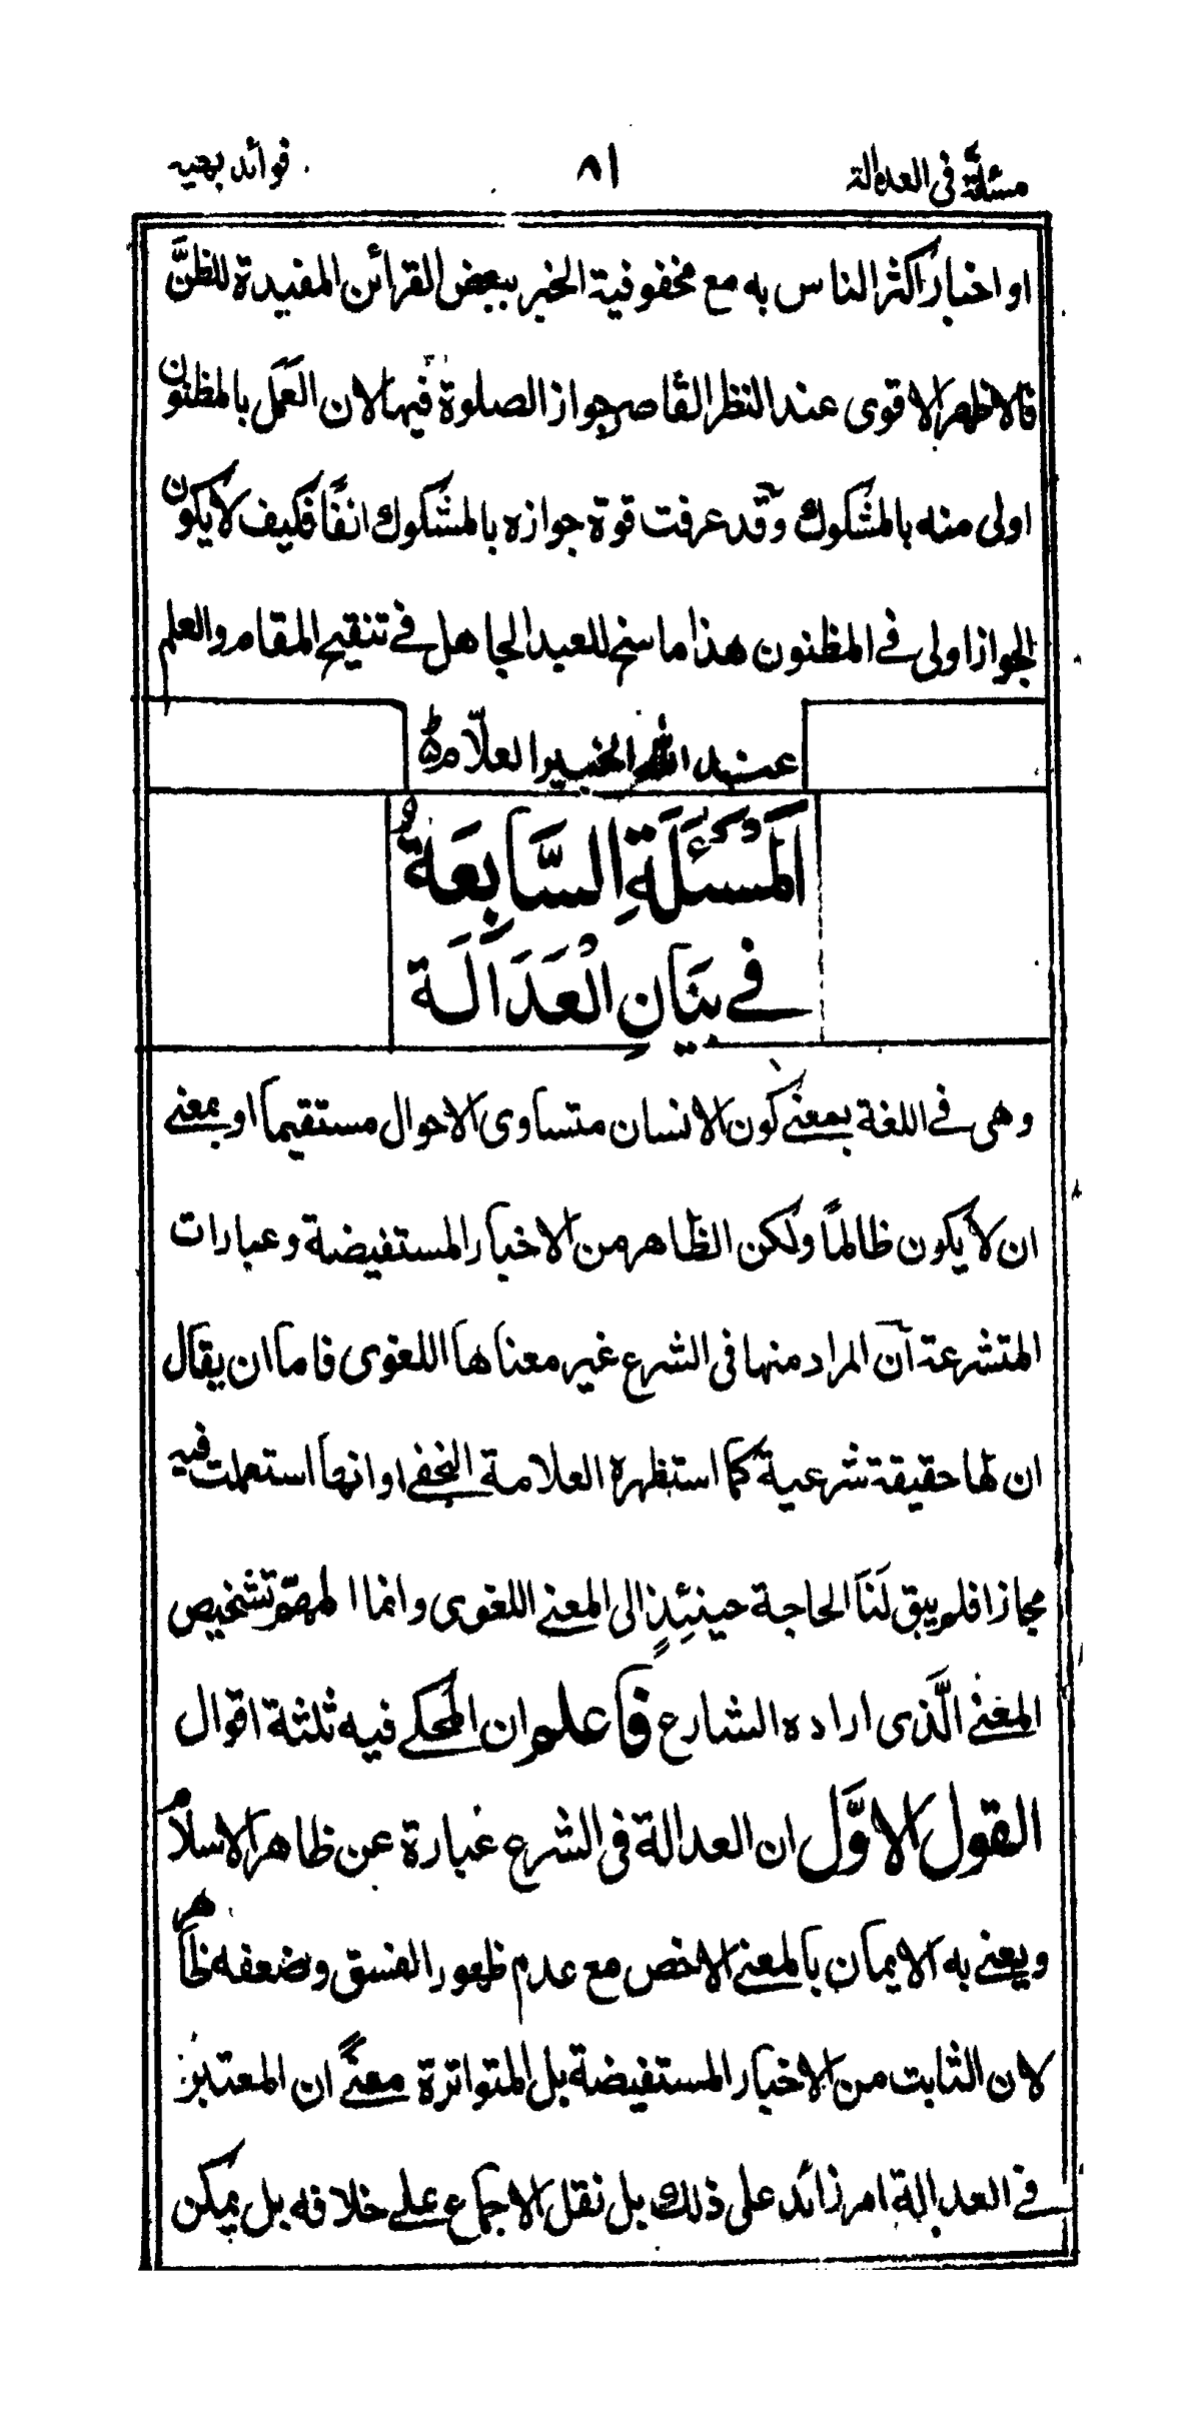 مسئلة فى العدالة ٨١ فوائد بهيه
او اخبار اكثر الناس به مع مخفوفية الخبر ببعض القرائن المفيدة للظنّ
فالاظهر الاقوى عند النظر القاصر جواز الصلوة فيها لان العمل بالمظنون
اولى منه بالمشكوك وقد عرفت قوة جوازه بالمشكوك انفًا فكيف لا يكون
الجواز اولى فے المظنون هذا ما سنح للعبد الجاهل فے تنقيح المقام والعلم
عند الله الخبير العلّام
اَلْمَسْئَلَةِ السَّابِعَة
فے بَيَانِ الْعَدَالَة
وهى فے اللغة بمعنے كون الانسان متساوى الاحوال مستقيما او بمعنے
ان لا يكون ظالمًا ولكن الظاهر من الاخبار المستفيضة وعبارات
المتشرعة ان المراد منها فى الشرع غير معناها اللغوى فاما ان يقال
ان لها حقيقة شرعية كما استظهره العلامة النجفے او انها استعملت فيه
مجازا فلم يبق لنا الحاجة حينئذٍ الى المعنے اللغوى وانما المهمّ تشخيص
المعنے الّذى اراده الشارع فاعلم ان المحكے فيه ثلثة اقوال
القول الاوّل ان العدالة فى الشرع عبارة عن ظاهر الاسلام
ويعنے به الايمان بالمعنے الاخص مع عدم ظهور الفسق وضعفه ظاهر
لان الثابت من الاخبار المستفيضة بل المتواترة معنےً ان المعتبر
فے العدالة امر زائد على ذلك بل نقل الاجماع علے خلافه بل يمكن